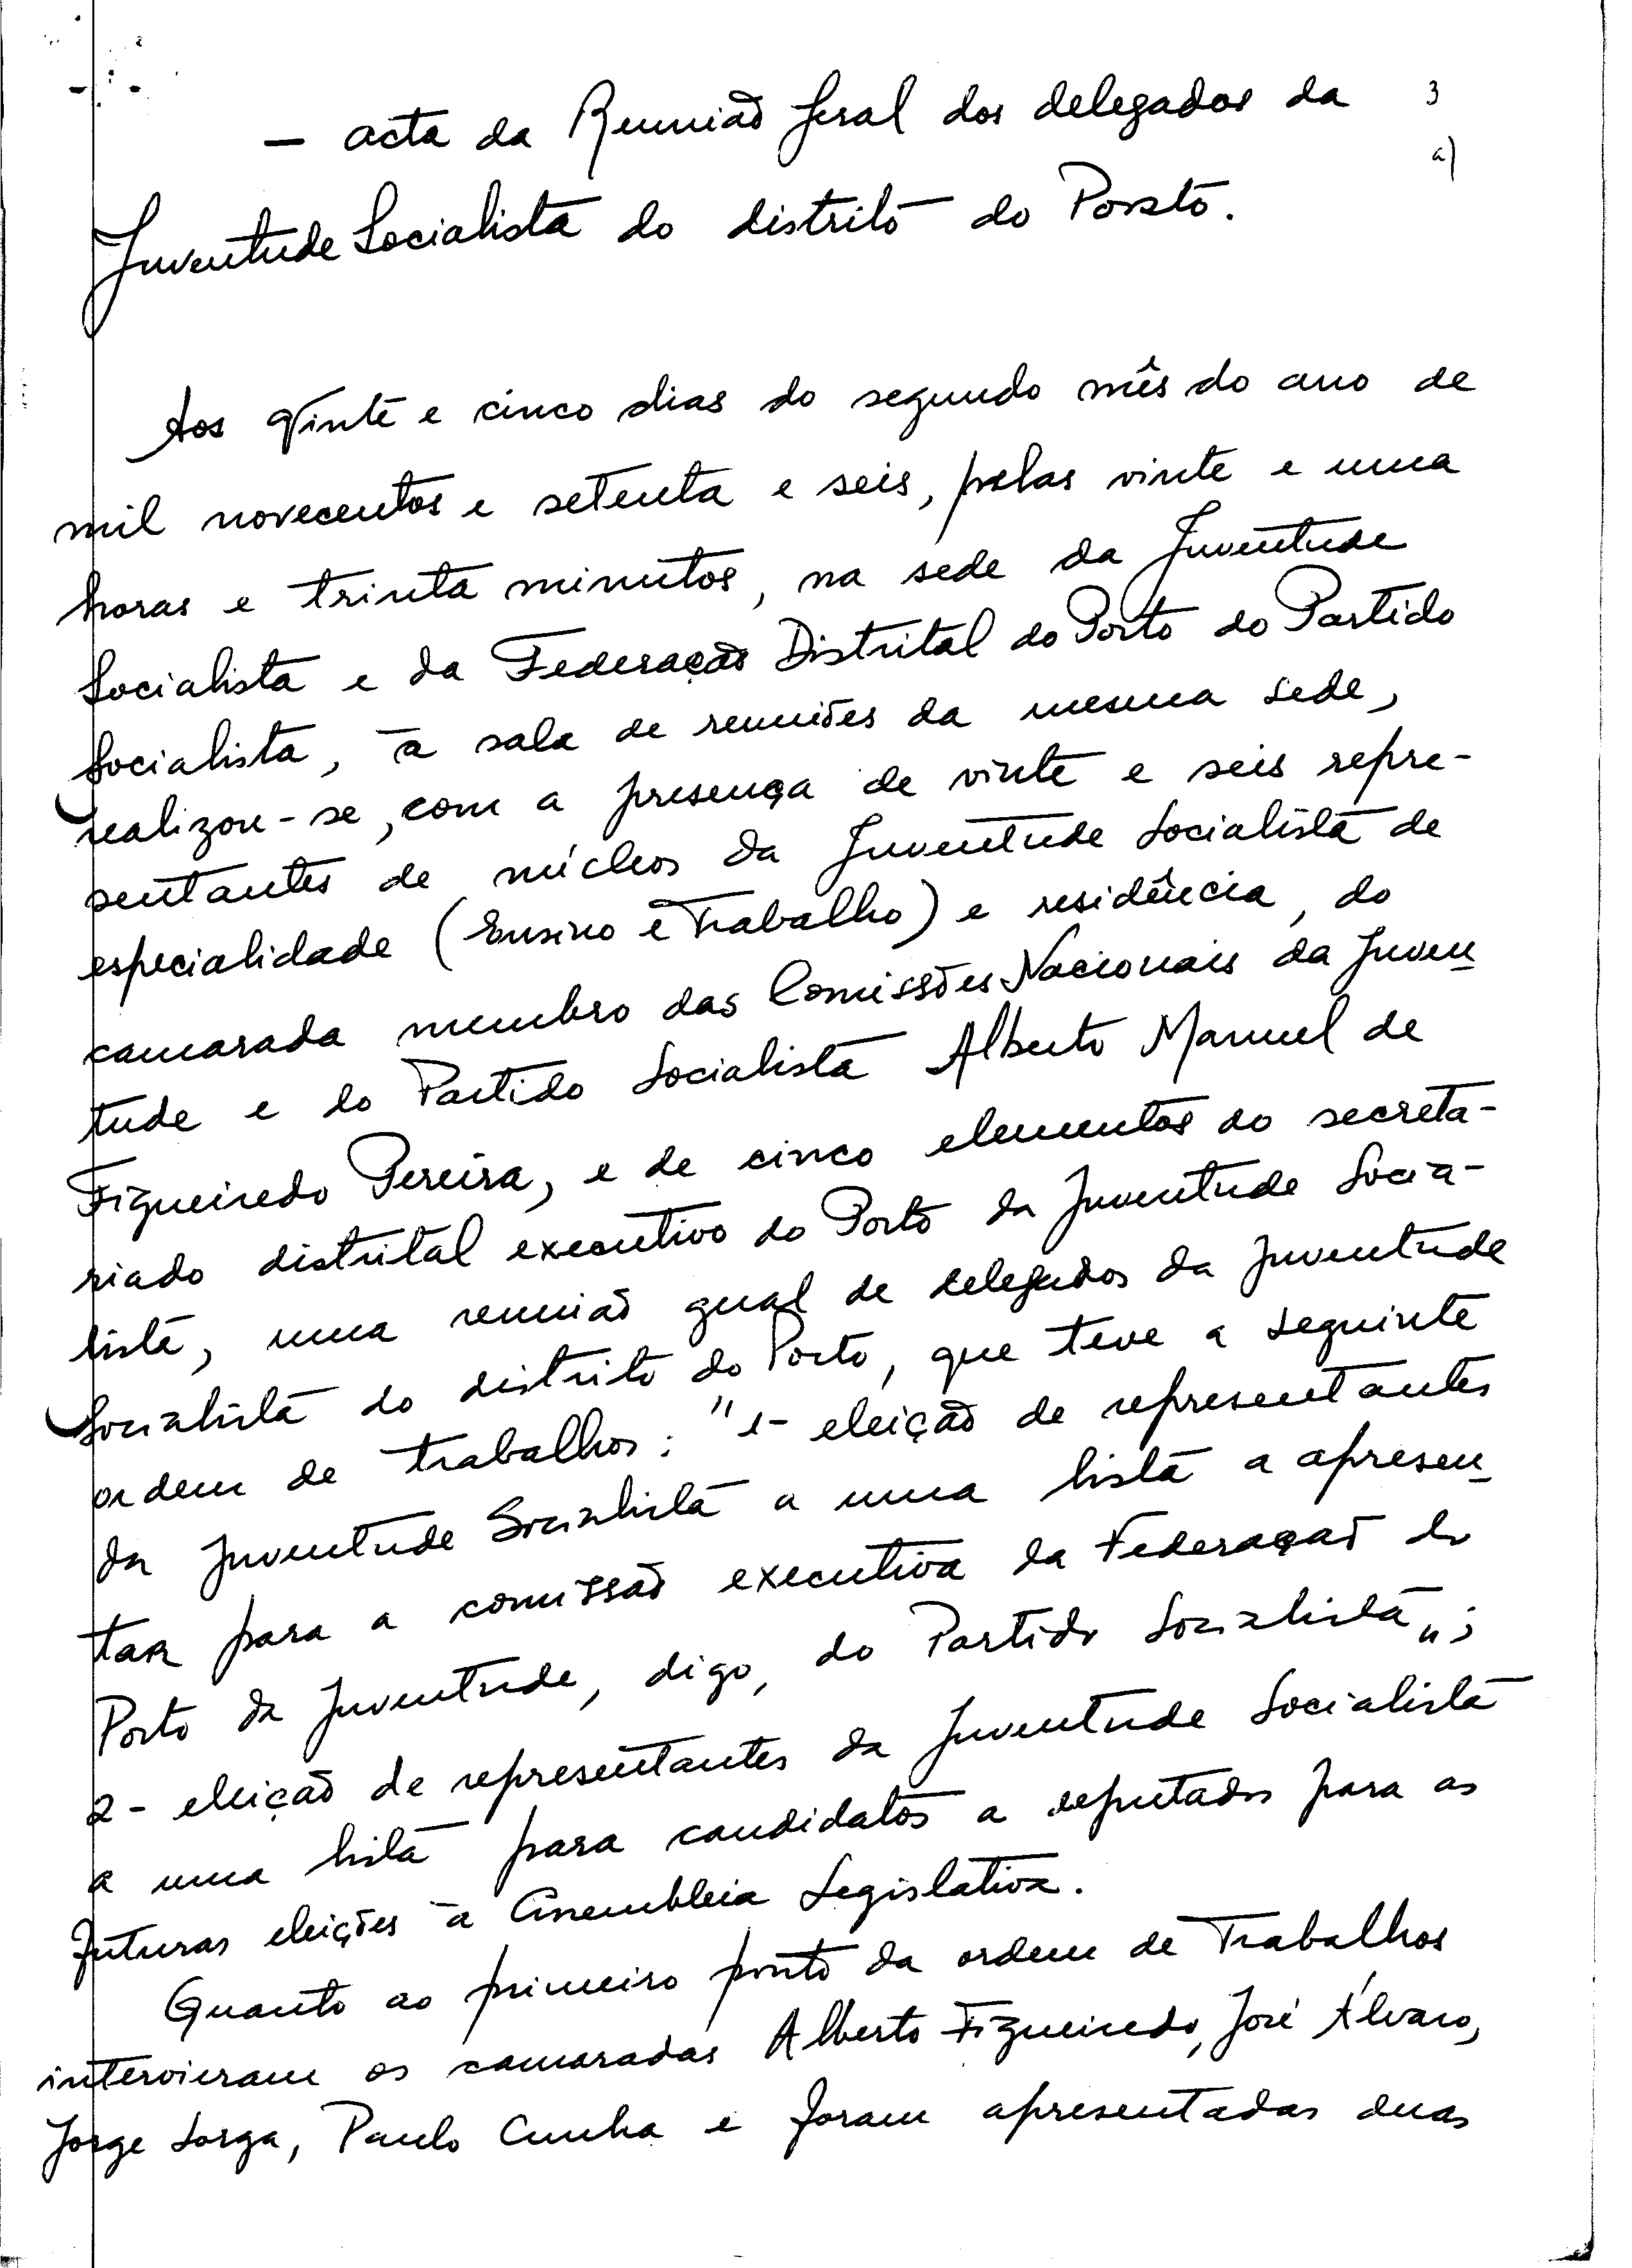 3
a)
— acta da Reunião Geral dos delegados da
Juventude Socialista do distrito do Porto.
Aos vinte e cinco dias do segundo mês do ano de
mil novecentos e setenta e seis, pelas vinte e uma
horas e trinta minutos, na sede da Juventude
Socialista e da Federação Distrital do Porto do Partido
Socialista, à sala de reuniões da mesma sede,
realizou-se, com a presença de vinte e seis repre-
sentantes de núcleos da Juventude Socialista de
especialidade (Ensino e Trabalho) e residência, do
camarada membro das Comissões Nacionais da Juven
tude e do Partido Socialista Alberto Manuel de
Figueiredo Pereira, e de cinco elementos do secreta-
riado distrital executivo do Porto da Juventude Socia-
lista, uma reunião geral de delegados da Juventude
Socialista do distrito do Porto, que teve a seguinte
ordem de trabalhos: "1- eleição de representantes
da Juventude Socialista a uma lista a apresen
tar para a comissão executiva da Federação do
Porto da Juventude, digo, do Partido Socialista";
2- eleição de representantes da Juventude Socialista
a uma lista para candidatos a deputados para as
futuras eleições à Assembleia Legislativa.
Quanto ao primeiro ponto da ordem de Trabalhos
intervieram os camaradas Alberto Figueiredo, José Álvaro,
Jorge Lorga, Paulo Cunha e foram apresentadas duas